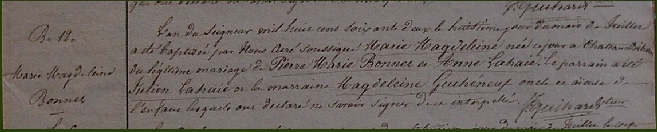 B. 12.
Marie Magdeleine
Bonner
L'an du Seigneur mil huit cent soixant deux le huitième jour du mois de Juillet
a été baptisée par Nous curé soussigné Marie Magdeleine née ce jour à
du légitime mariage de Pierre Marie Bonner et Anne Lahaie. Le parrain a été
Julien Lahaie et la marraine Magdeleine Guihéneuf oncle et aïeule de
l'enfant lesquels ont déclaré ne savoir signer de ce interpellés